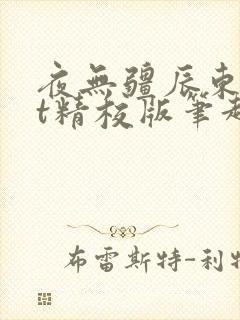 夜無疆辰東
t精校版筆趣
布雷斯特-利特